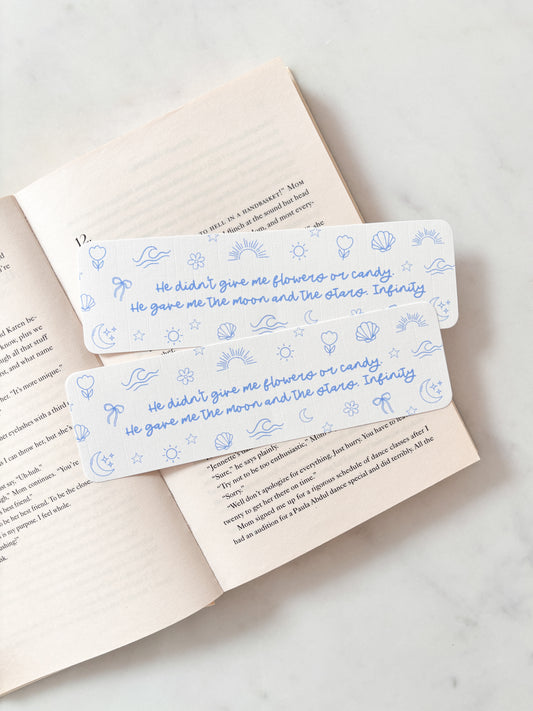 12.
TO HELL IN A HANDBASKET!" MOM
flinch at the sound but head
Mom, and most every-
she
He didn't give me flowers or candy.
He gave me the moon and the stars. Infinity
He didn't give me flowers or candy.
He gave me the moon and the stars. Infinity
"Sure," he says plainly.
"Try not to be too enthusiastic," Mom
"Sorry."
"Well don't apologize for everything. Just hurry. You have to
twenty to get her there on time."
Mom signed me up for a rigorous schedule of dance classes after I
had an audition for a Paula Abdul dance special and did terribly. All the
and Karen be-
know, plus we
ough all that stuff
rst, and what name
"It's more unique."
eyelashes with a third
I can throw her, but she's
say, "Uh-huh."
Mom continues. "You're
best friend."
be her best friend. To be the close
is my purpose. I feel whole.